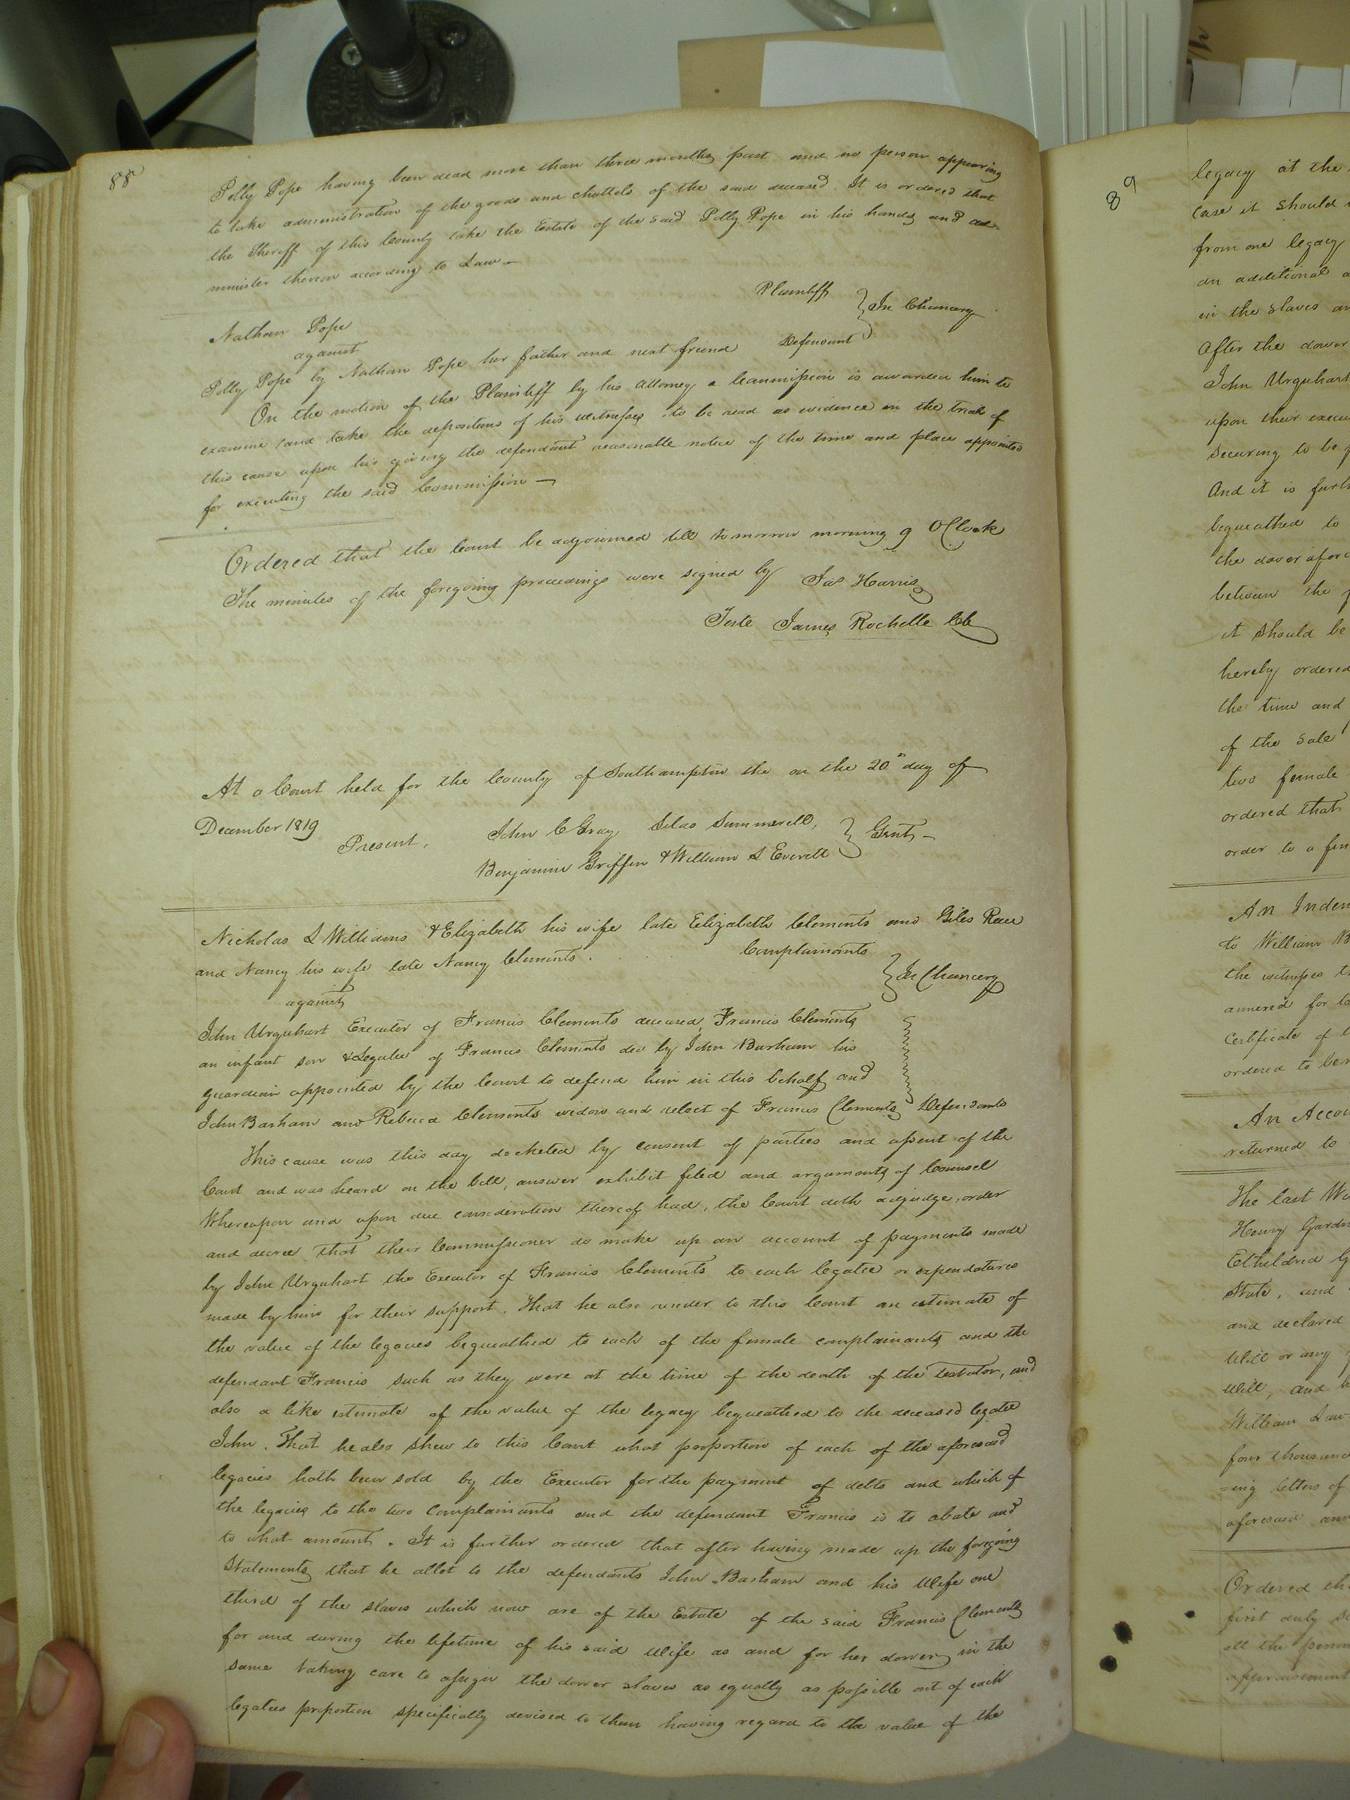 88
Polly Pope having been dead more than three months past and no person appearing
to take administration of the goods and chattels of the said deceased. It is ordered that
the Sheriff of this County take the Estate of the said Polly Pope in his hands and ad-
minister thereon according to Law —
Nathan Pope Plaintiff
against } In Chancery
Polly Pope by Nathan Pope her father and next friend Defendant
On the motion of the Plaintiff by his attorney a Commission is awarded him to
examine and take the depositions of his witnesses to be read as evidence in the trial of
this cause upon his giving the defendant reasonable notice of the time and place appointed
for executing the said Commission —
Ordered that the Court be adjourned till tomorrow morning 9 OClock
The minutes of the foregoing proceedings were signed by Jas Harris
Teste James Rochelle
At a Court held for the County of Southampton the on the 20th day of
December 1819
Present, John C Gray Silas Summerell, } Gents —
Benjamin Griffin & William S Everett
Nicholas L Williams & Elizabeth his wife late Elizabeth Clements and Giles
and Nancy his wife late Nancy Clements. Complainants } In Chancery
against
John Urquhart Executor of Francis Clements deceased, Francis Clements
an infant son & Legatee of Francis Clements decd by John Barham his
guardian appointed by the Court to defend him in this behalf and
John Barham and Rebecca Clements widow and relect of Francis Clements Defendants
This cause was this day docketed by consent of parties and assent of the
Court and was heard on the bill, answer exhibit filed and arguments of Counsel
Whereupon and upon due consideration thereof had, the Court doth adjudge, order
and decree that their Commissioner do make up an account of payments made
by John Urquhart the Executor of Francis Clements to each legatee or expendatures
made by him for their support, That he also render to this Court an estimate of
the value of the legacies bequeathed to each of the female complainants and the
defendant Francis such as they were at the time of the death of the testator, and
also a like estimate of the value of the legacy bequeathed to the deceased legatee
John. That he also shew to this Court what proportion of each of the aforesaid
legacies hath been sold by the Executor for the payment of debts and which of
the legacies to the two Complainants and the defendant Francis is to abate and
to what amount. It is further ordered that after having made up the foregoing
Statements that he allot to the defendants John Barham and his Wife one
third of the slaves which now are of the Estate of the said Francis Clements
for and during the lifetime of his said Wife as and for her dower in the
same taking care to assign the dower slaves as equally as possible out of each
legatees proportion specifically devised to them having regard to the value of the
89
legacy at the
case it should
from one legacy
an additional
in the slaves
After the dower
John Urquhart
upon their
securing to be
And it is
bequeathed to
the dower
between the
it should be
hereby ordered
the time and
of the sale
two female
ordered that
order to a
An
to William
the witnesses
annexed for
Certificate of
ordered to be
An
returned to
The last
Henry
Etheldred
State, and
and declared
Will or any
Will, and
William
four
ing letters of
aforesaid
Ordered
first duly
all the